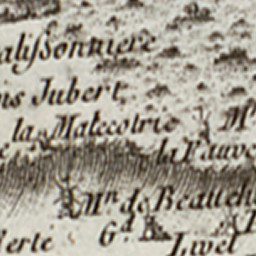 alissonniere
ns Jubert
la Malecotrie M
la Fauve
Mn. de Beauch
Gd.